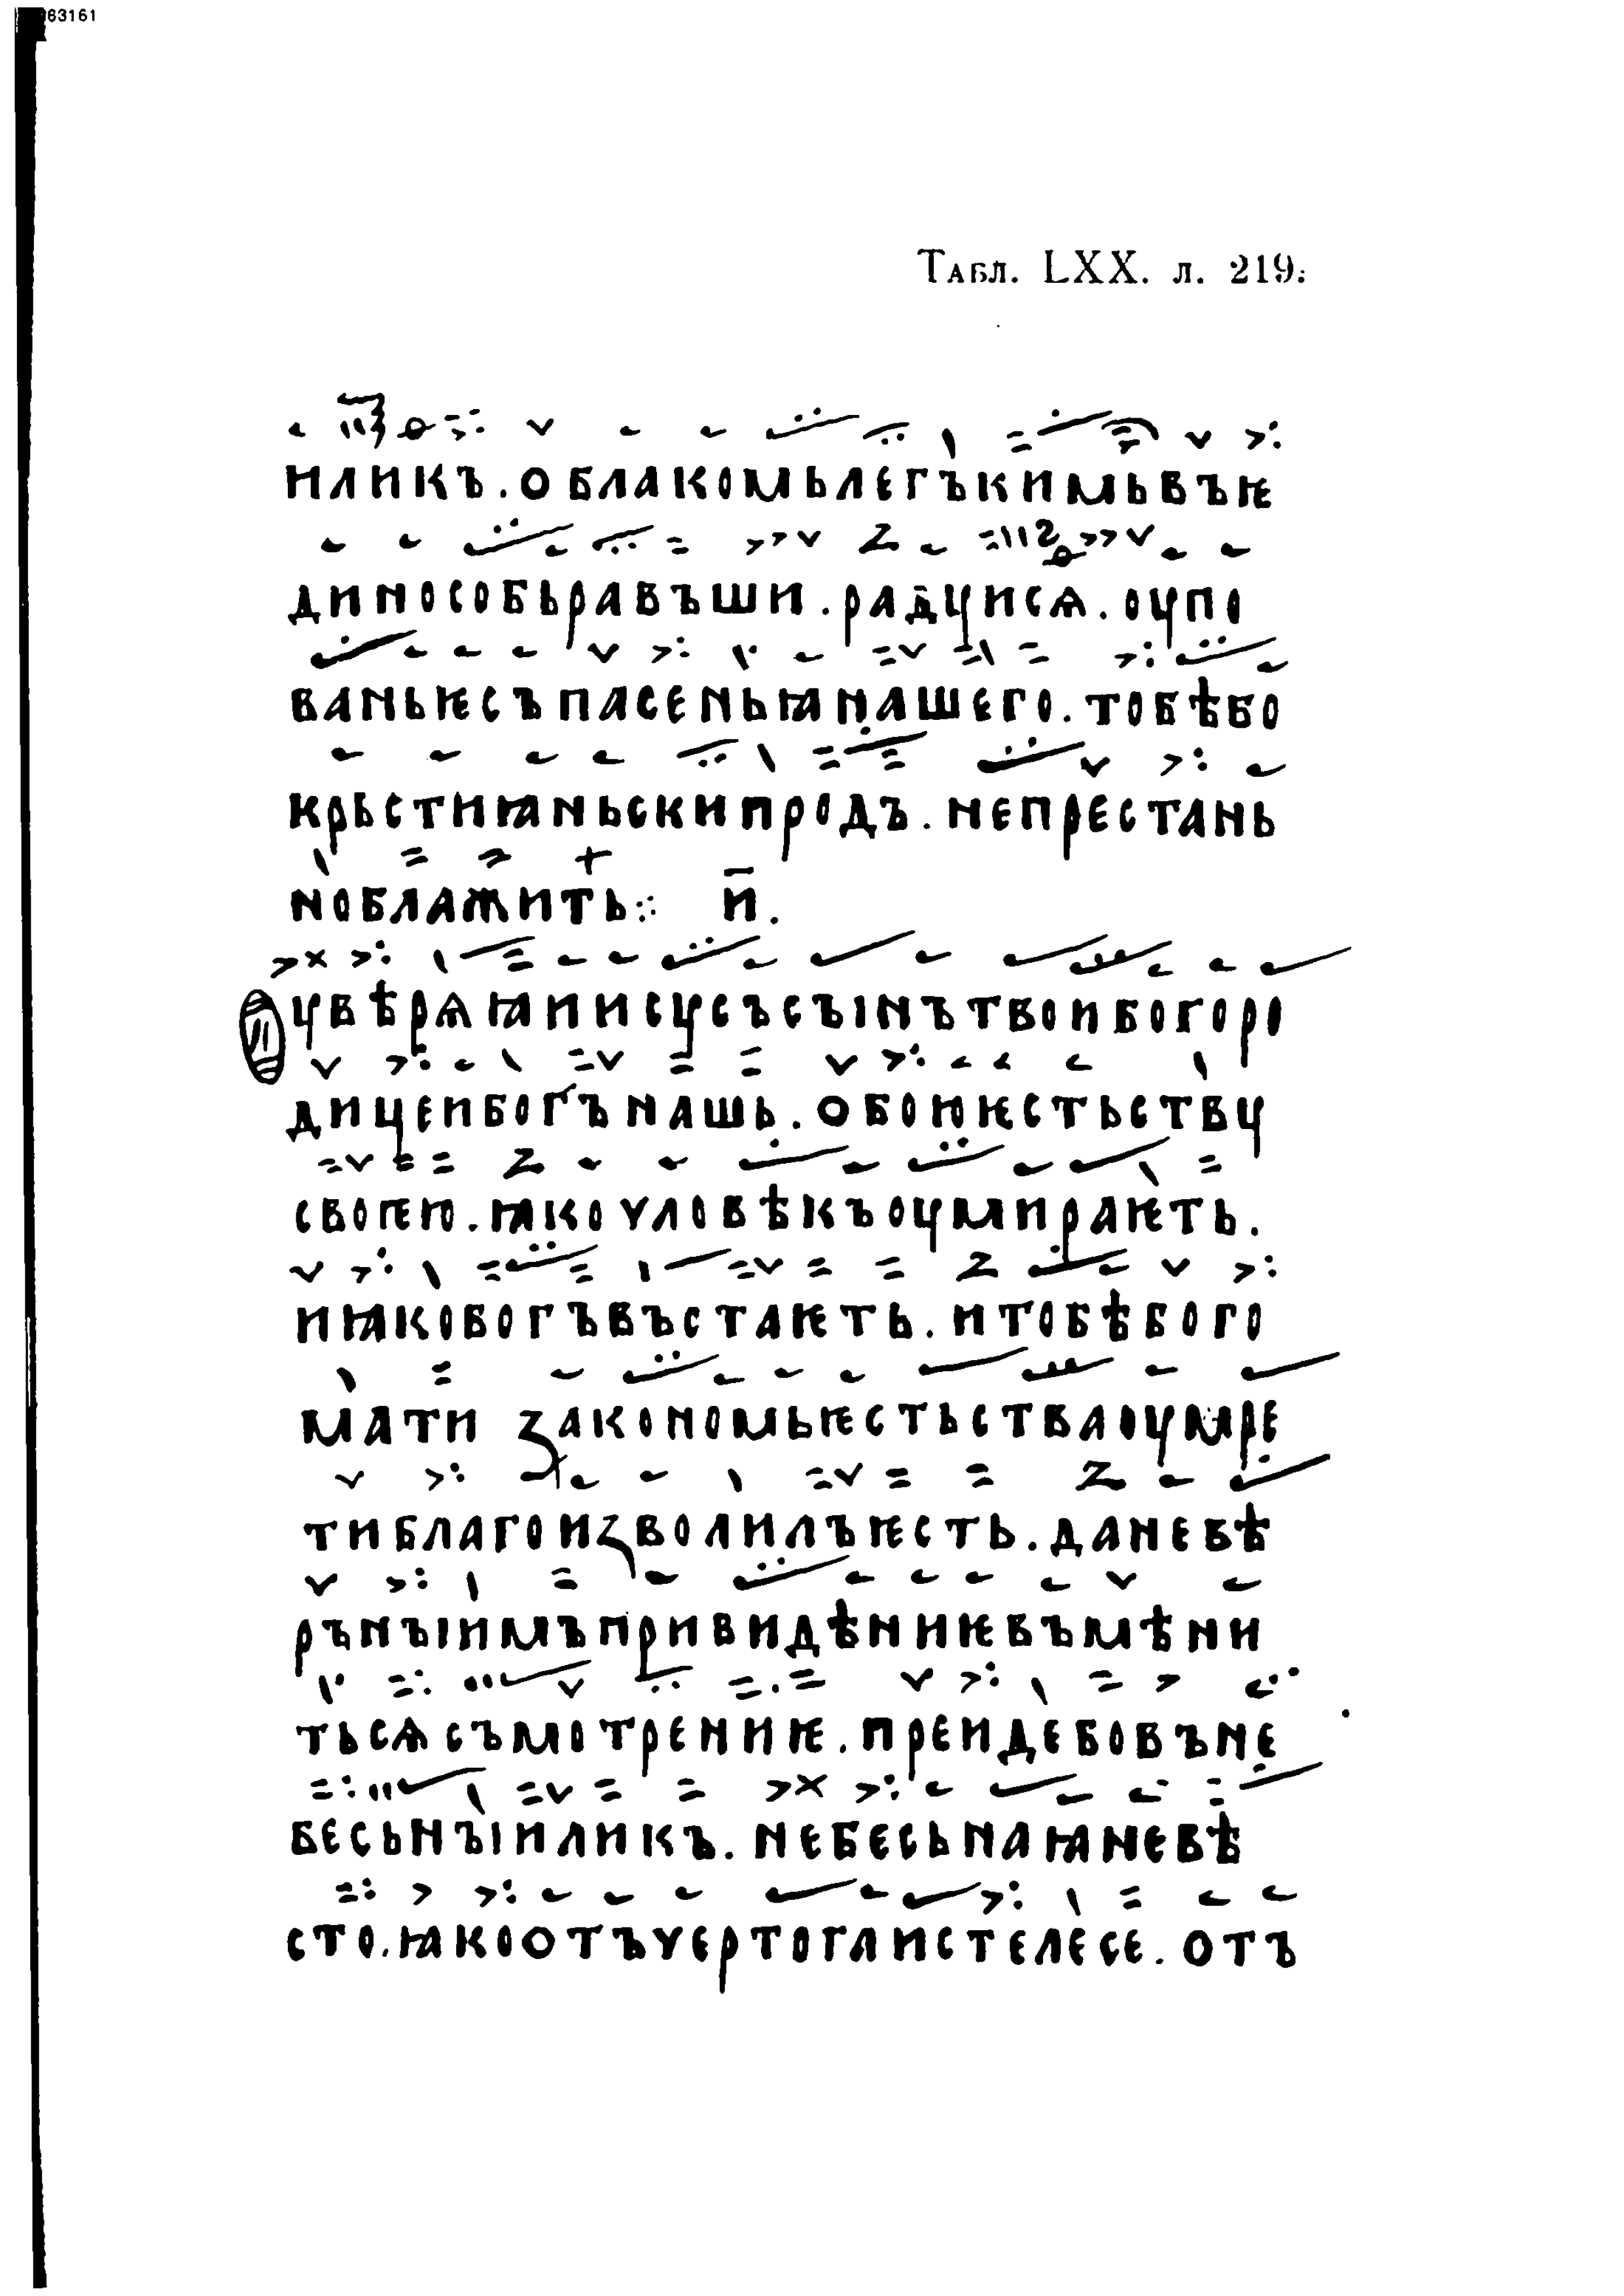 63161
Табл. LXX. л. 219.
иликъ. облакомьлегъкимьвъѥ
динособьравъши. радуисѧ. оупо
ваньѥсъпасеньꙗнашего. тобѣбо
крьстиꙗньскипродъ. непрестань
облажить⁘ и҃.
Увѣрѧꙗиисусъсꙑнътвоибогоро
дицеибогънашь. обоюѥстьству
своѥю. ꙗкочловѣкъоумираѥть.
иꙗкобогъвъстаѥть. итобѣбого
мати закономьѥстьстваоумре
тиблагоизволилъѥсть. даневѣ
рънꙑимъпривидѣниѥвъмѣни
тьсѧсъмотрениѥ. преидебовъне
бесьнꙑиликъ. небесьнаꙗневѣ
сто. ꙗкоотъчертоглистелесе. отъ